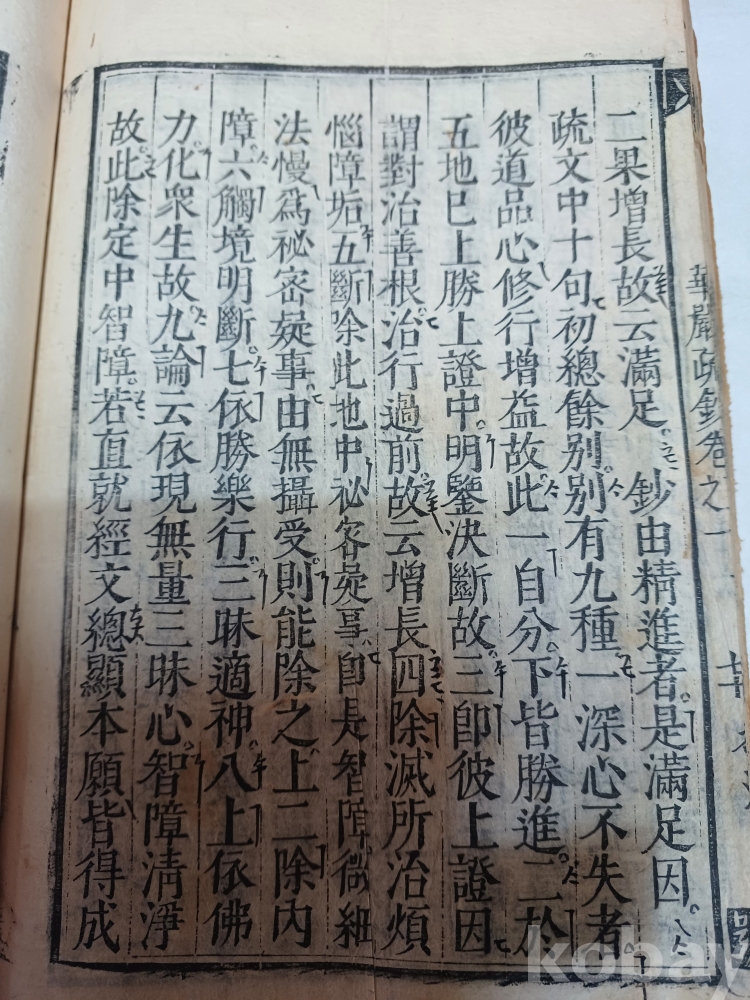 二果增長故云滿足 鈔由精進者是滿足因
疏文中十句初總餘別別有九種一深心不失者
彼道品心修行增益故此一自分下皆勝進二於
五地已上勝上證中明鑒決斷故三即彼上證因
謂對治善根治行過前故云增長四除滅所治煩
惱障垢五斷除此地中祕密疑事即是智障微細
法慢爲祕密疑事由無攝受則能除之上二除內
障六觸境明斷七依勝樂行三昧適神八上依佛
力化衆生故九論云依現無量三昧心智障清淨
故此除定中智障若直就經文總顯本願皆得成
華嚴疏鈔卷之
kobay